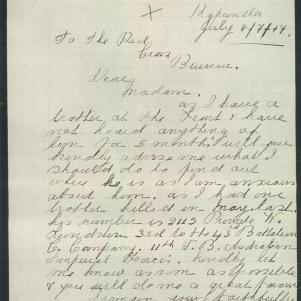 July 8/7/17.
To The Red
Cross
Bureau.
Dear
Madam.
as I have a
brother at the Front & have
not heard anything of
him for 5 months will you
kindly advise me what I
should do to find out
where he is as I am anxious
about him, as I had one
brother killed in
his number is 2113 Private W.
3rd to the 43 Battalion
C. Company. 11th I. B. Australian
Imperial Forces. kindly let
me know as soon as possible
& you will do me a great favour
I remain yours faithfully